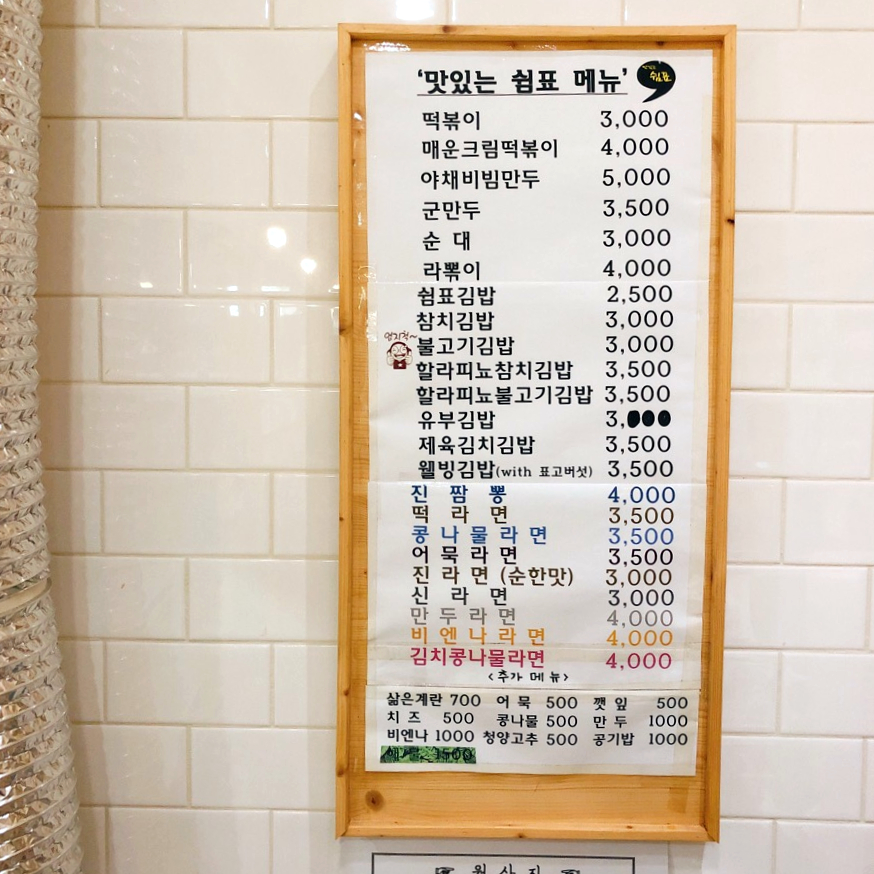 '맛있는 쉼표 메뉴' 쉼표
떡볶이 3,000
매운크림떡볶이 4,000
야채비빔만두 5,000
군만두 3,500
순 대 3,000
라뽁이 4,000
쉼표김밥 2,500
참치김밥 3,000
엄지척~
불고기김밥 3,000
할라피뇨참치김밥 3,500
할라피뇨불고기김밥 3,500
유부김밥 3,000
제육김치김밥 3,500
웰빙김밥(with 표고버섯) 3,500
진 짬 뽕 4,000
떡 라 면 3,500
콩나물라면 3,500
어묵라면 3,500
진라면 (순한맛) 3,000
신 라 면 3,000
만두라면 4,000
비엔나라면 4,000
김치콩나물라면 4,000
<추가 메뉴>
삶은계란 700 어 묵 500 깻 잎 500
치 즈 500 콩나물 500 만 두 1000
비엔나 1000 청양고추 500 공기밥 1000
1500
원산지